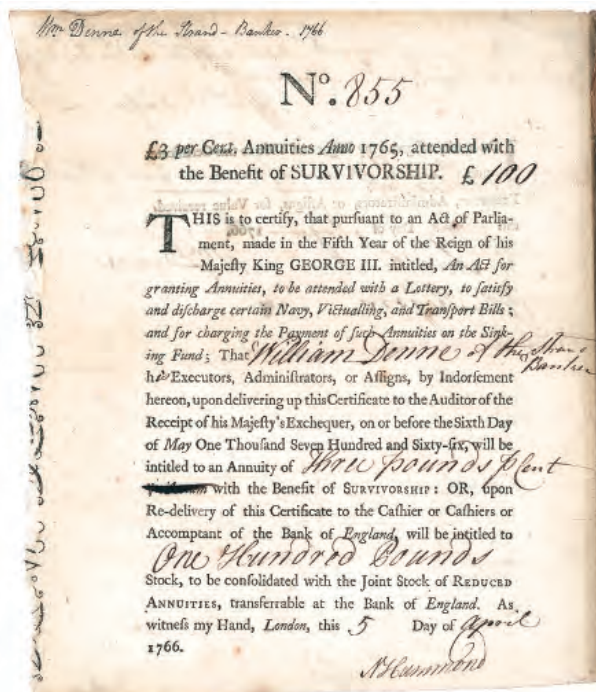 Wm Denne of the Strand - Banker. 1766
No. 855
£3 per Cent. Annuities Anno 1765, attended with
the Benefit of SURVIVORSHIP. £ 100
THIS is to certify, that pursuant to an Act of Parlia-
ment, made in the Fifth Year of the Reign of his
Majeſty King GEORGE III. intitled, An Act for
granting Annuities, to be attended with a Lottery, to ſatisfy
and diſcharge certain Navy, Victualling, and Tranſport Bills;
and for charging the Payment of ſuch Annuities on the Sink-
ing Fund; That William Denne of the Strand
Banker
his Executors, Adminiſtrators, or Aſſigns, by Indorſement
hereon, upon delivering up this Certificate to the Auditor of the
Receipt of his Majeſty's Exchequer, on or before the Sixth Day
of May One Thouſand Seven Hundred and Sixty-ſix, will be
intitled to an Annuity of Three pounds p Cent
with the Benefit of SURVIVORSHIP: OR, upon
Re-delivery of this Certificate to the Caſhier or Caſhiers or
Accomptant of the Bank of England, will be intitled to
One Hundred Pounds
Stock, to be conſolidated with the Joint Stock of REDUCED
ANNUITIES, transferrable at the Bank of England. As
witneſs my Hand, London, this 5 Day of April
1766.
N Hammond